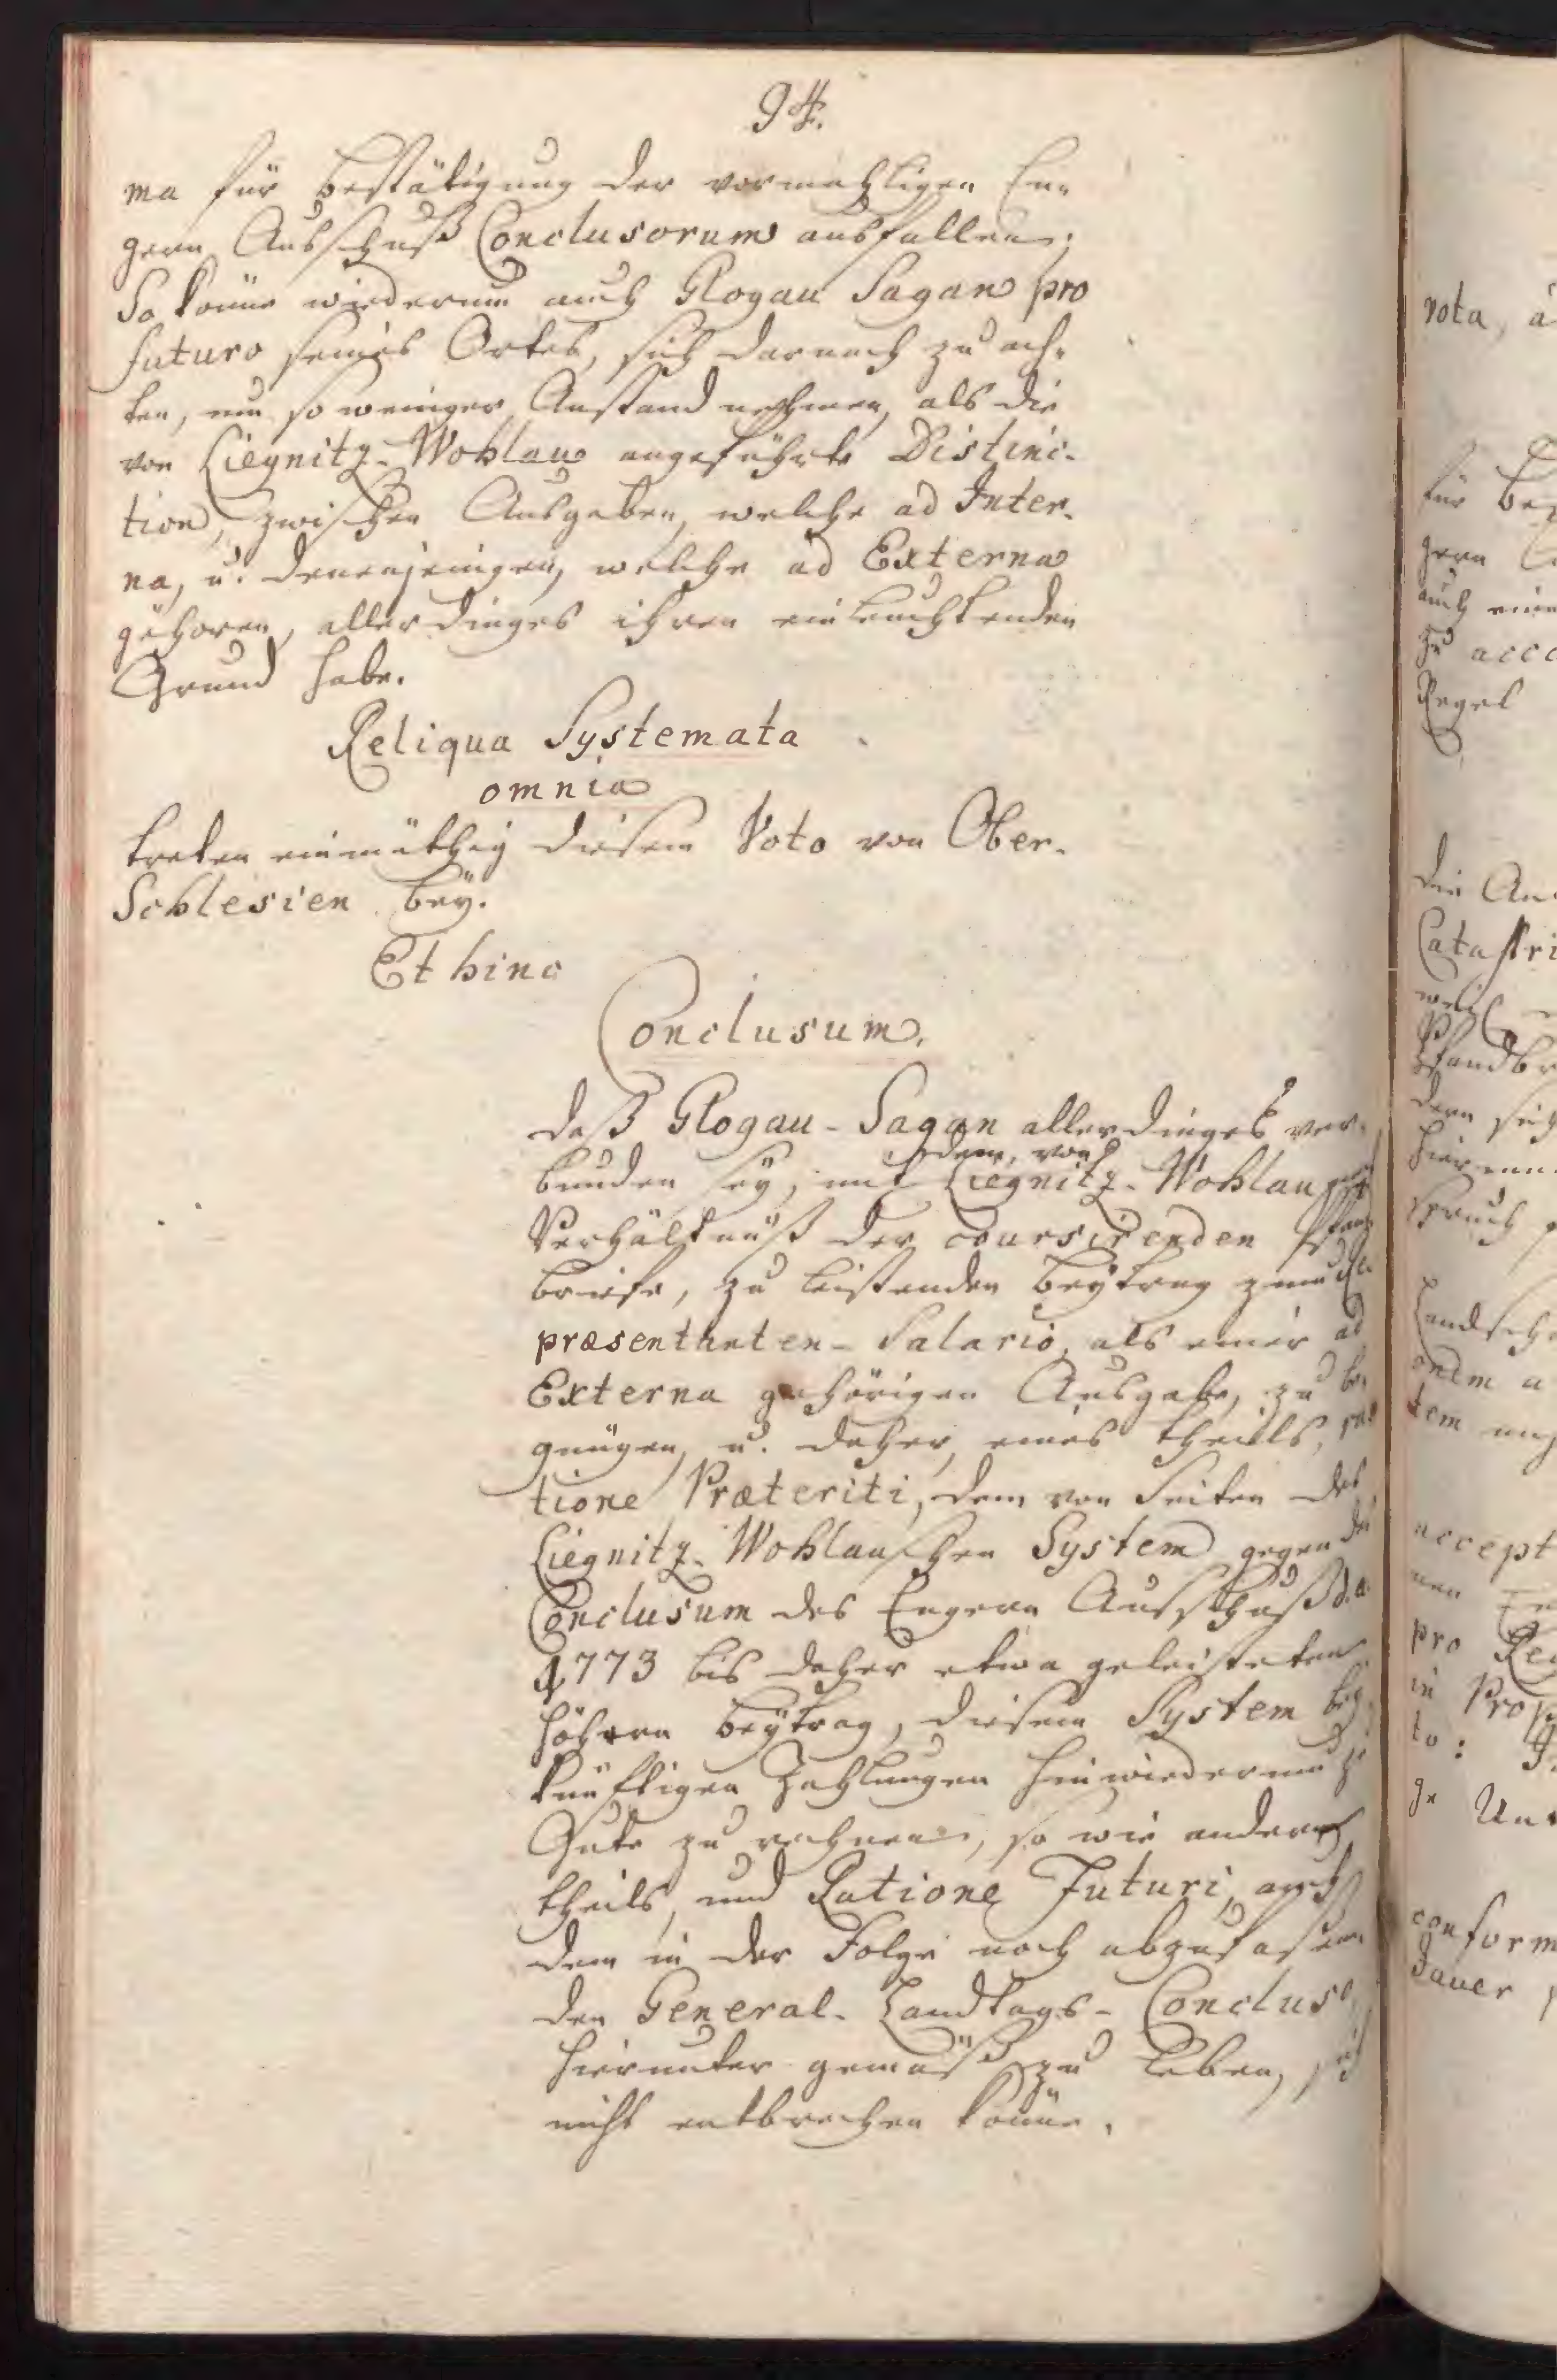 94.
ma für Bestätigung der vormahligen En-
gern Ausschuß Conclusorum ausfallen;
So könne wiederum auch Glogau Sagan pro
futuro seines Ortes, sich darnach zu ach-
ten, um so weniger Anstand nehmen, als die
von Liegnitz-Wohlau angeführte Distinc-
tion, zwischen Ausgaben, welche ad Inter-
na, u. denenjenigen, welche ad Externa
gehören, allerdinges ihren einleuchtenden
Grund habe.
Reliqua Systemata
omnia
treten einmüthig diesem Voto von Ober-
Schlesien bey.
Et hinc
Conclusum.
daß Glogau-Sagan allerdinges ver-
dem, von
bunden sey, mit Liegnitz-Wohlau
Verhältnüß der coursirenden Pfand
briefe, zu leistenden Beytrag zum Re
præsentanten-Salario, als einer ad
Externa gehörigen Ausgabe, zu be-
gnügen, u. daher, eines theils, ra
tione Præteriti, dem von Seiten des
Liegnitz-Wohlauschen System gegen das
Conclusum des Engern Ausschuß d. a.
1773 bis daher etwa geleisteten
höhern Beytrag, diesem System bey
künftigen Zahlungen hinwiederum zu
Gute zu rechnen, so wie andern
theils, und Ratione Futuri, auch
dem in der Folge noch abzufaßen
den General-Landtags-Concluso
hierunter gemäß zu leben, sich
nicht entbrechen könne.
vota, a
für Be
gern
auch eine
zu acco
Regel
die An
Catastri
weil
Pfandbr
dern sich
hierunn
spruch
Landsch
onem a
tem
accept
pro Re
in Prop
to:
ge Un
conform
Jauer